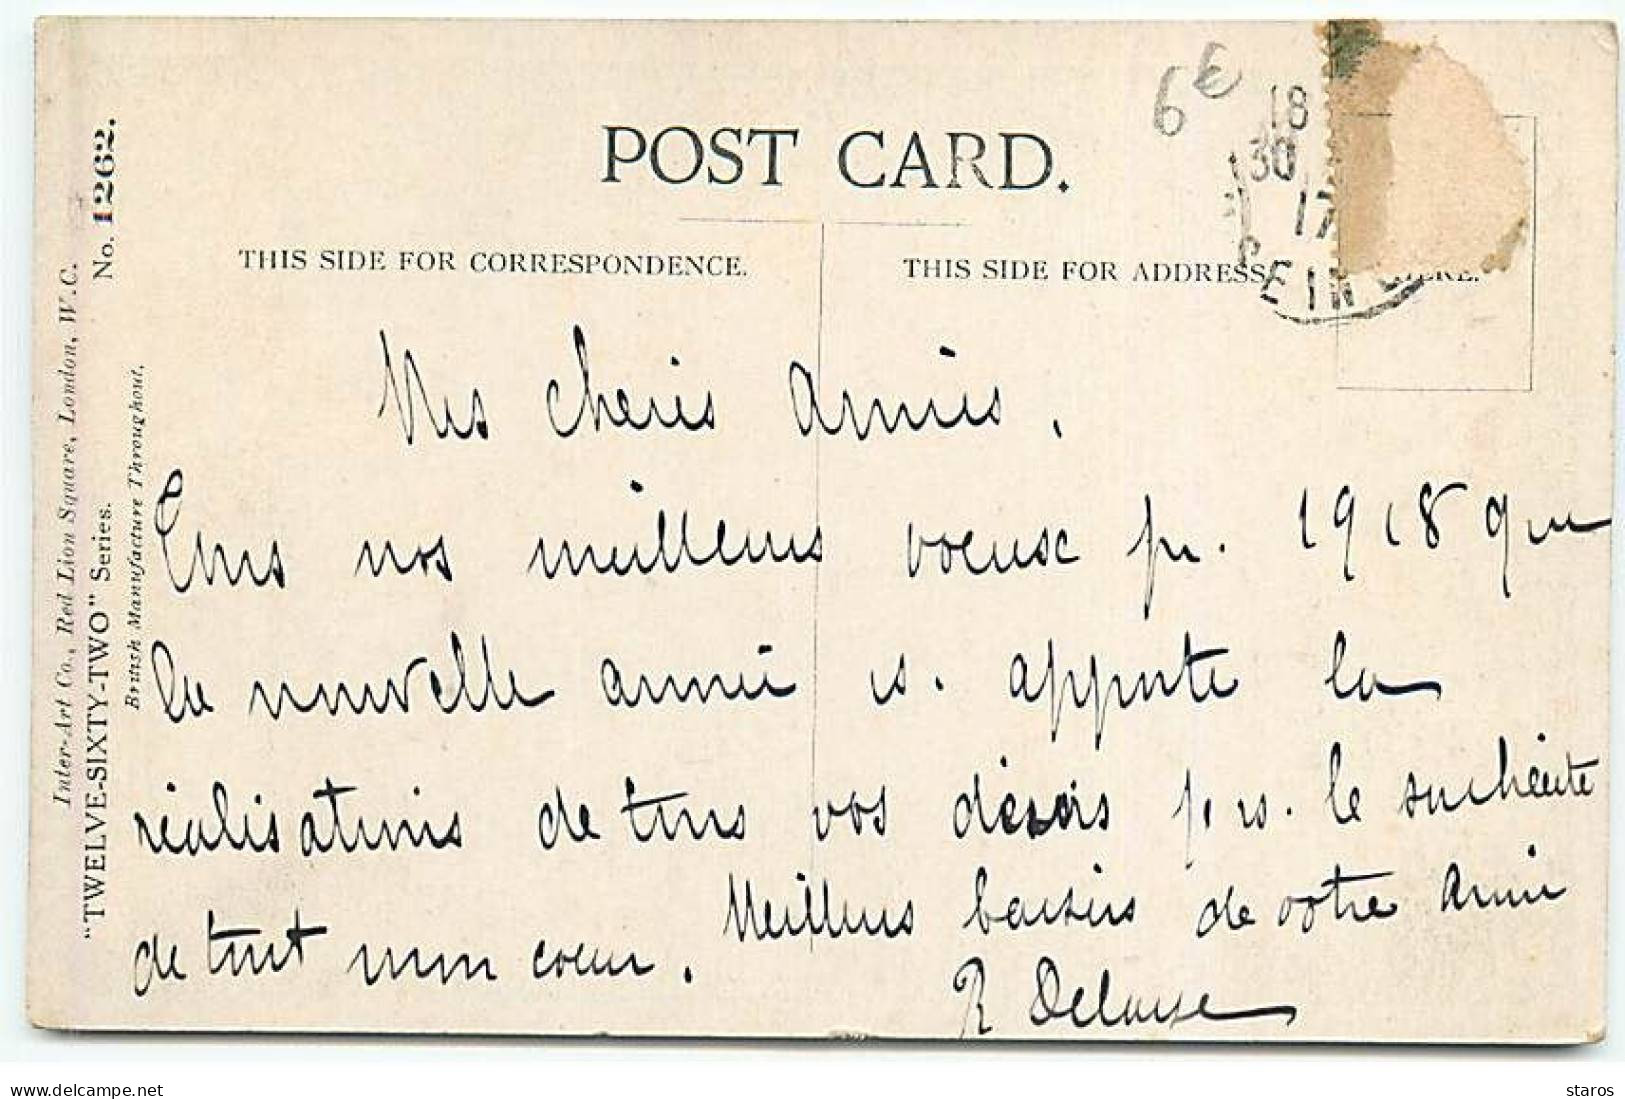 POST CARD.
THIS SIDE FOR CORRESPONDENCE.
THIS SIDE FOR ADDRESS HERE.
6€
18
30
17
EIN
No. 1262.
Inter-Art Co., Red Lion Square, London, W.C.
"TWELVE-SIXTY-TWO" Series.
British Manufacture Throughout.
Mes cheries Amies,
Tous nos meilleurs voeux pr. 1918 que
la nouvelle année vs. apporte la
réalisations de tous vos désirs je vs. le souhaite
de tout mon coeur. Meilleurs baisers de votre Amie
R
delcampe.net
staros